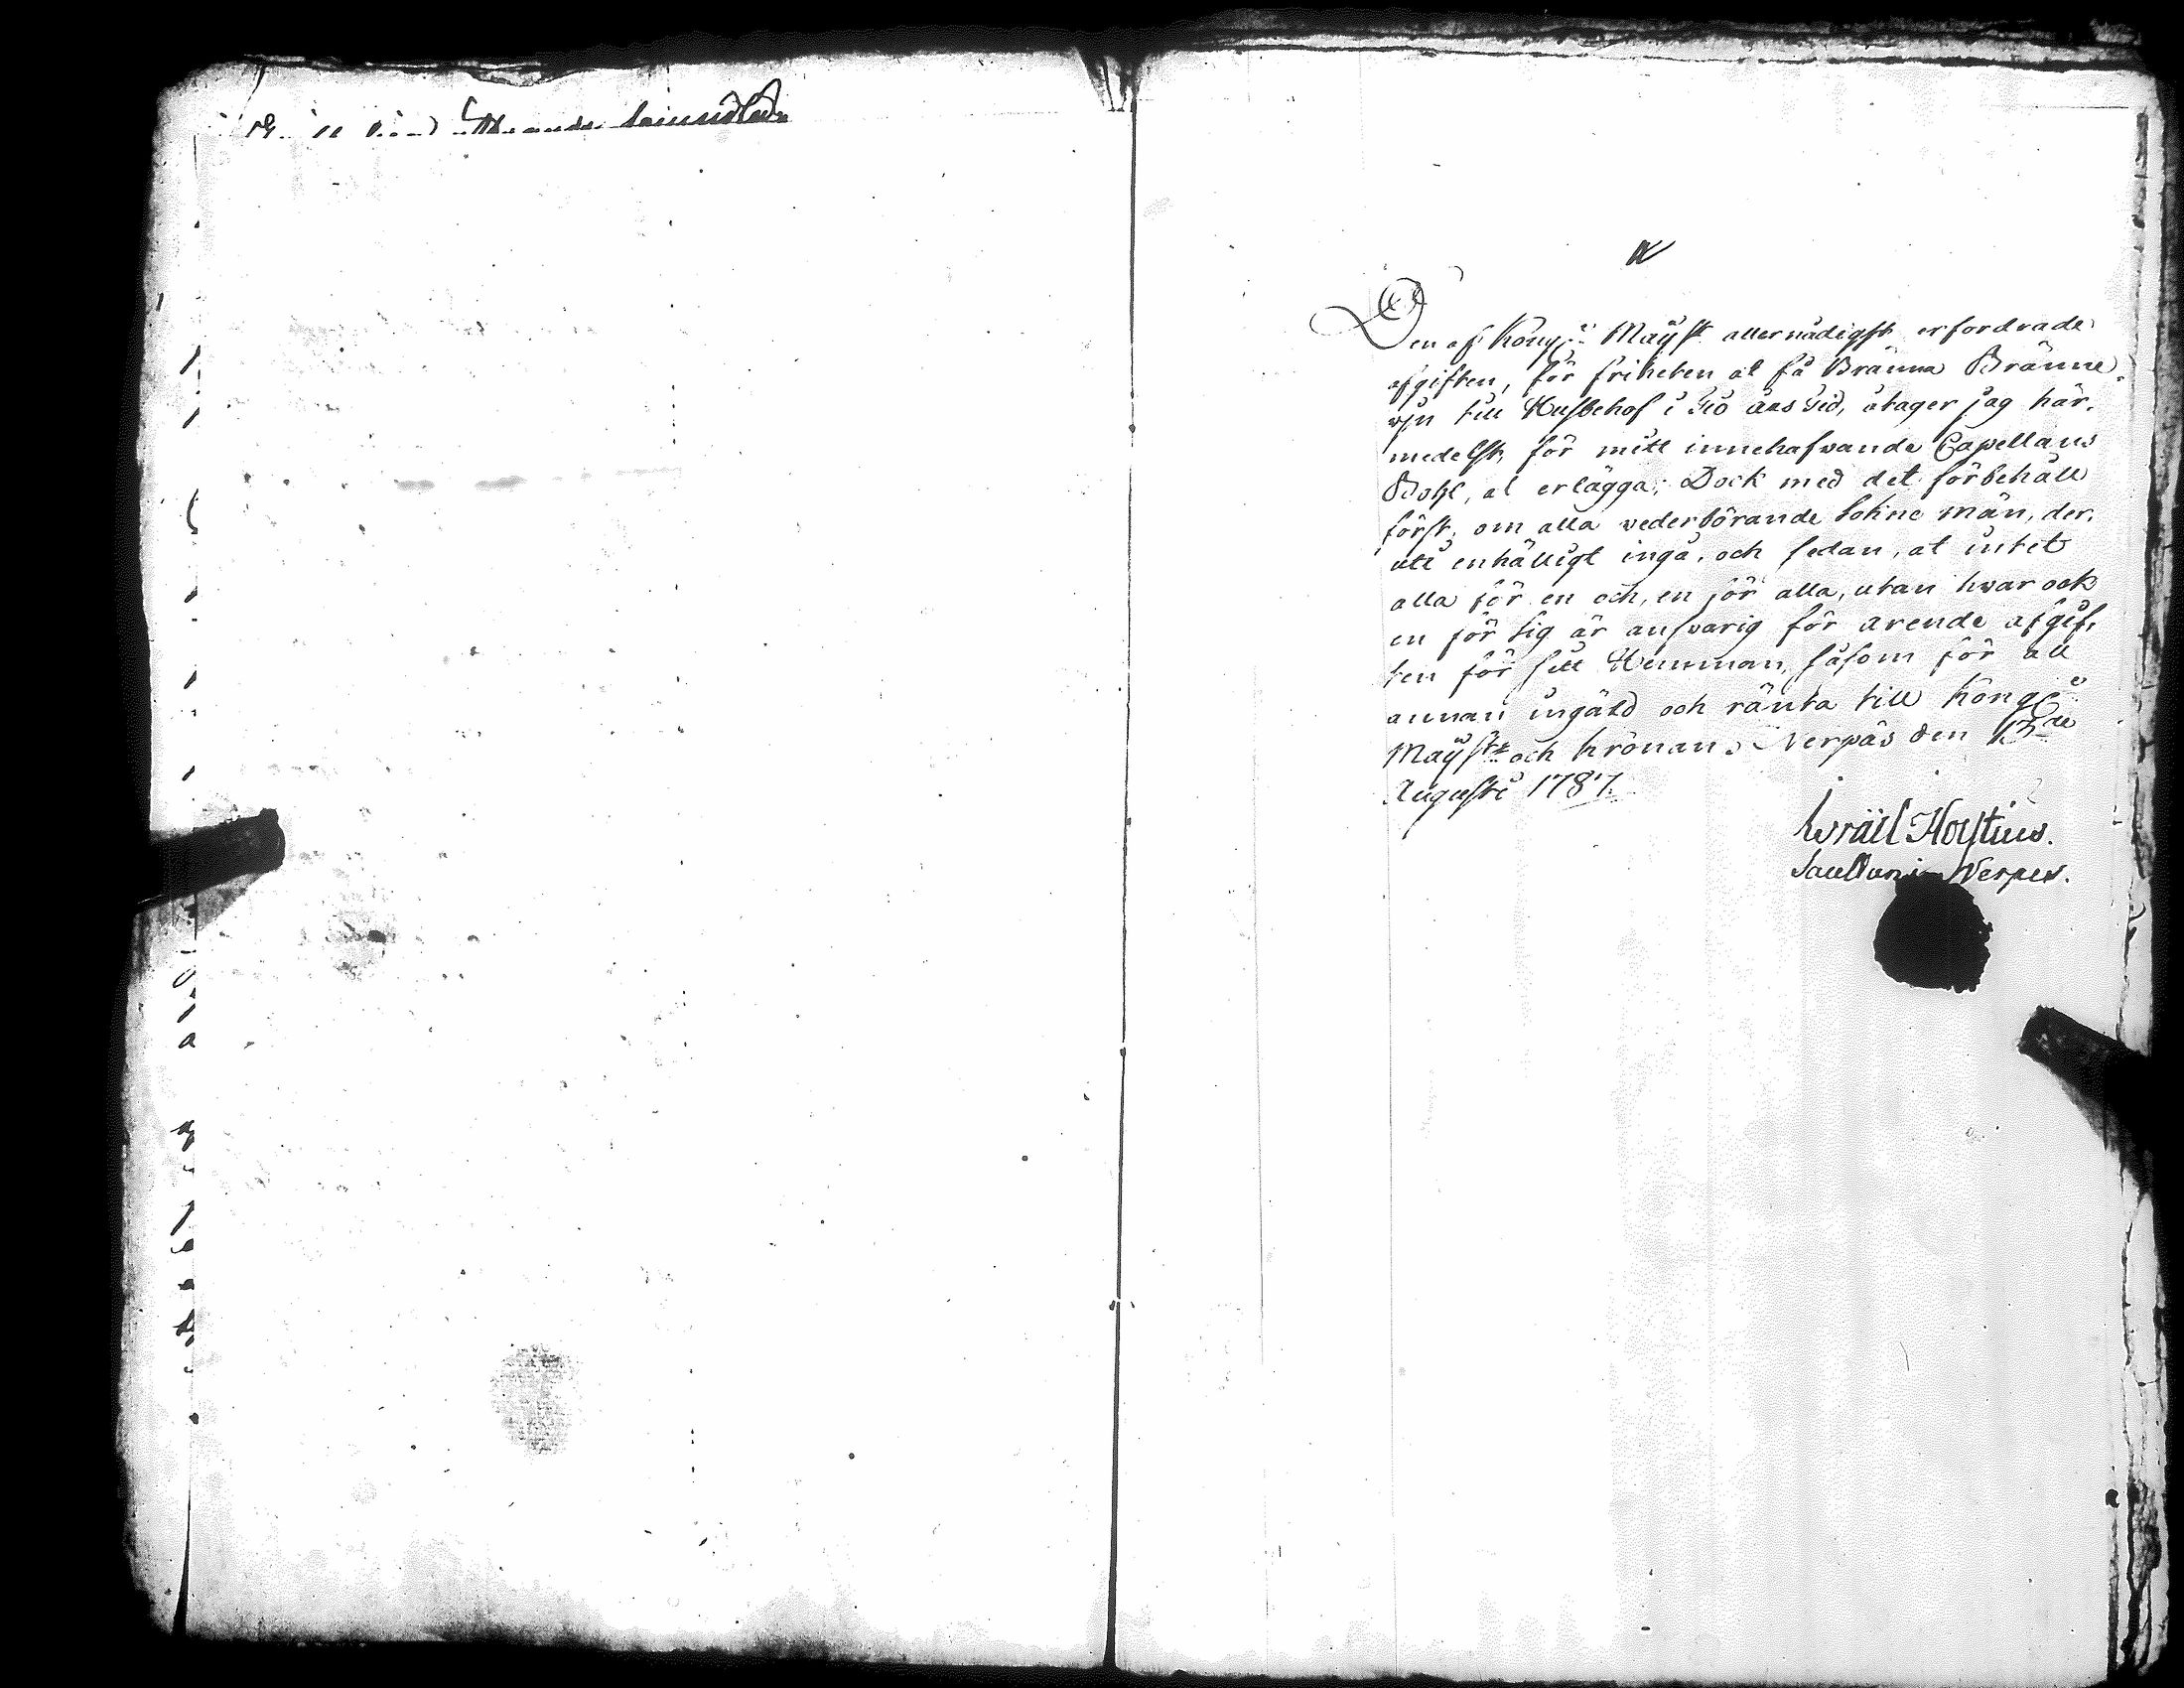 Den af Kongl: Maÿst allernådigst erfordrade
afgiften, för friheten at få Bränna Bränne-
vin till Husbehof i Tio års Tid, åtager jag här-
medelst, för mitt innehafvande Capellans
Bohl, at erlägga; Dock med det förbehåll
först, om alla vederbörande Sokne män, der-
uti enhälligt ingå, och sedan, at intet
alla för en och, en för alla, utan hvar ock
en för sig är answarig för arende afgif-
ten för sitt Hemman, såsom för all
annan ingäld och ränta till Kongl:
Maÿstz och Kronan. Nerpäs den 13de
Augusti 1787.
Israël Hoystius.
Sacellan i Nerpes.